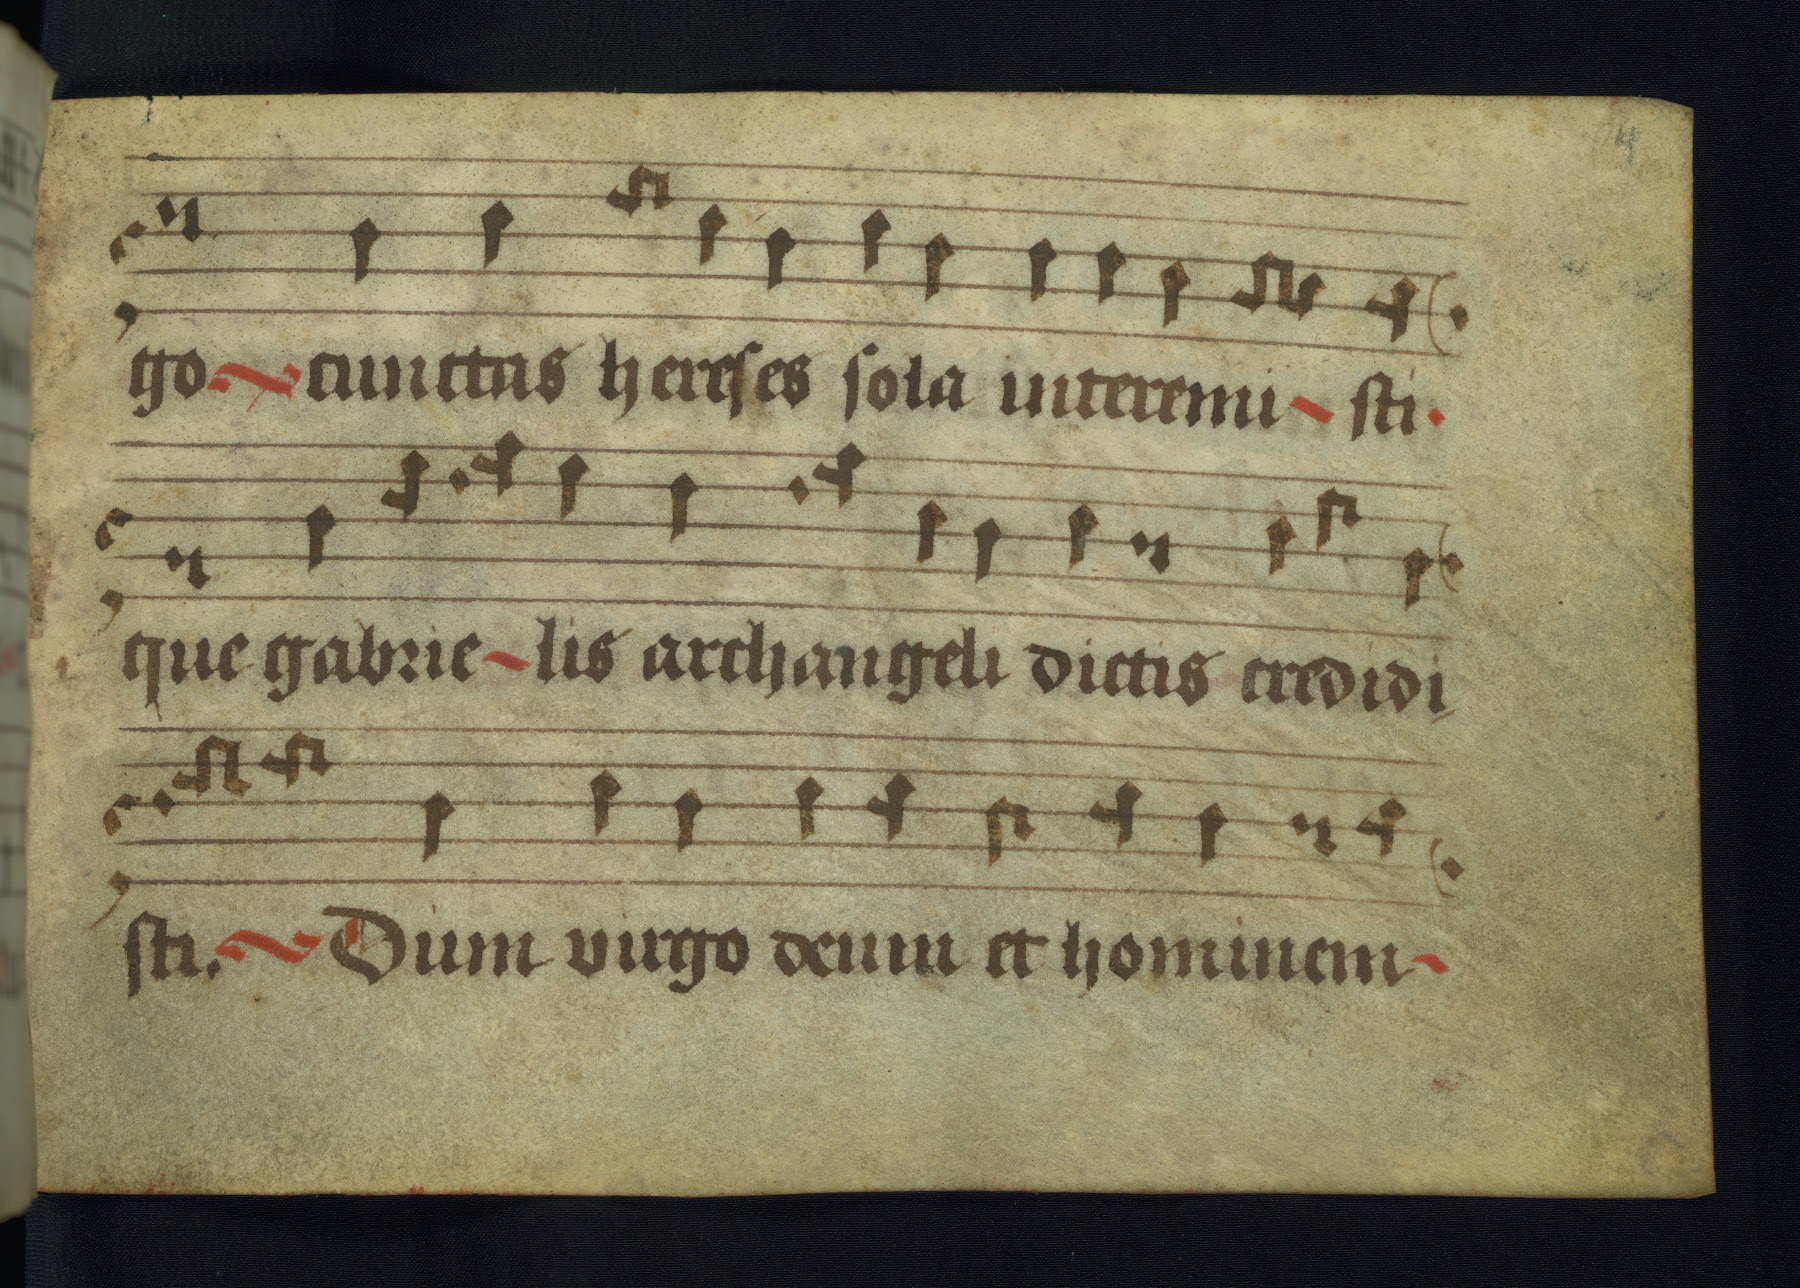 go cunctas hereses sola interemi sti.
que gabrie lis archangeli dictis credidi
sti. Dum virgo deum et hominem